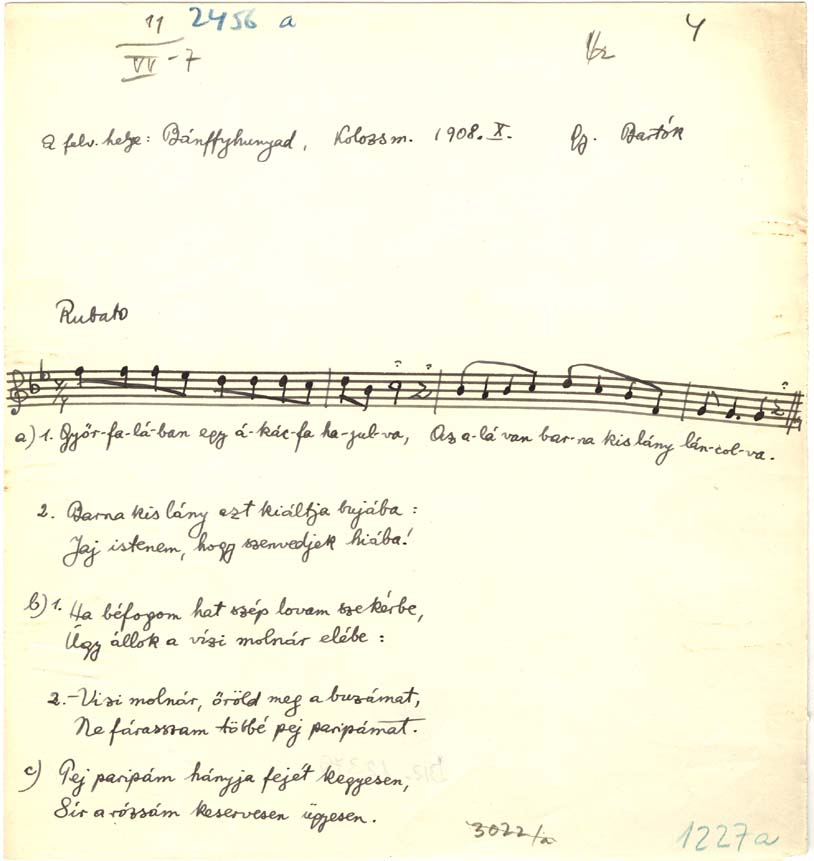 11 2456 a
VI-7
4
A felv. helye: Bánffyhunyad, Kolozsm. 1908. X. Gy. Bartók
Rubato
a) 1. Győr-fa-lá-ban egy á-kác-fa ha-jul-va, Az a-lá van bar-na kis lány lán-col-va.
2. Barna kis lány ezt kiáltja bujába:
Jaj istenem, hogy szenvedjek hiába!
b) 1. Ha béfogom hat szép lovam szekérbe,
Úgy állok a vízi molnár elébe:
2. -Vizi molnár, őröld meg a buzámat,
Ne fárasszam többé pej paripámat.
c) Pej paripám hányja fejét kegyesen,
Sír a rózsám keservesen ügyesen.
3022/a
1227a